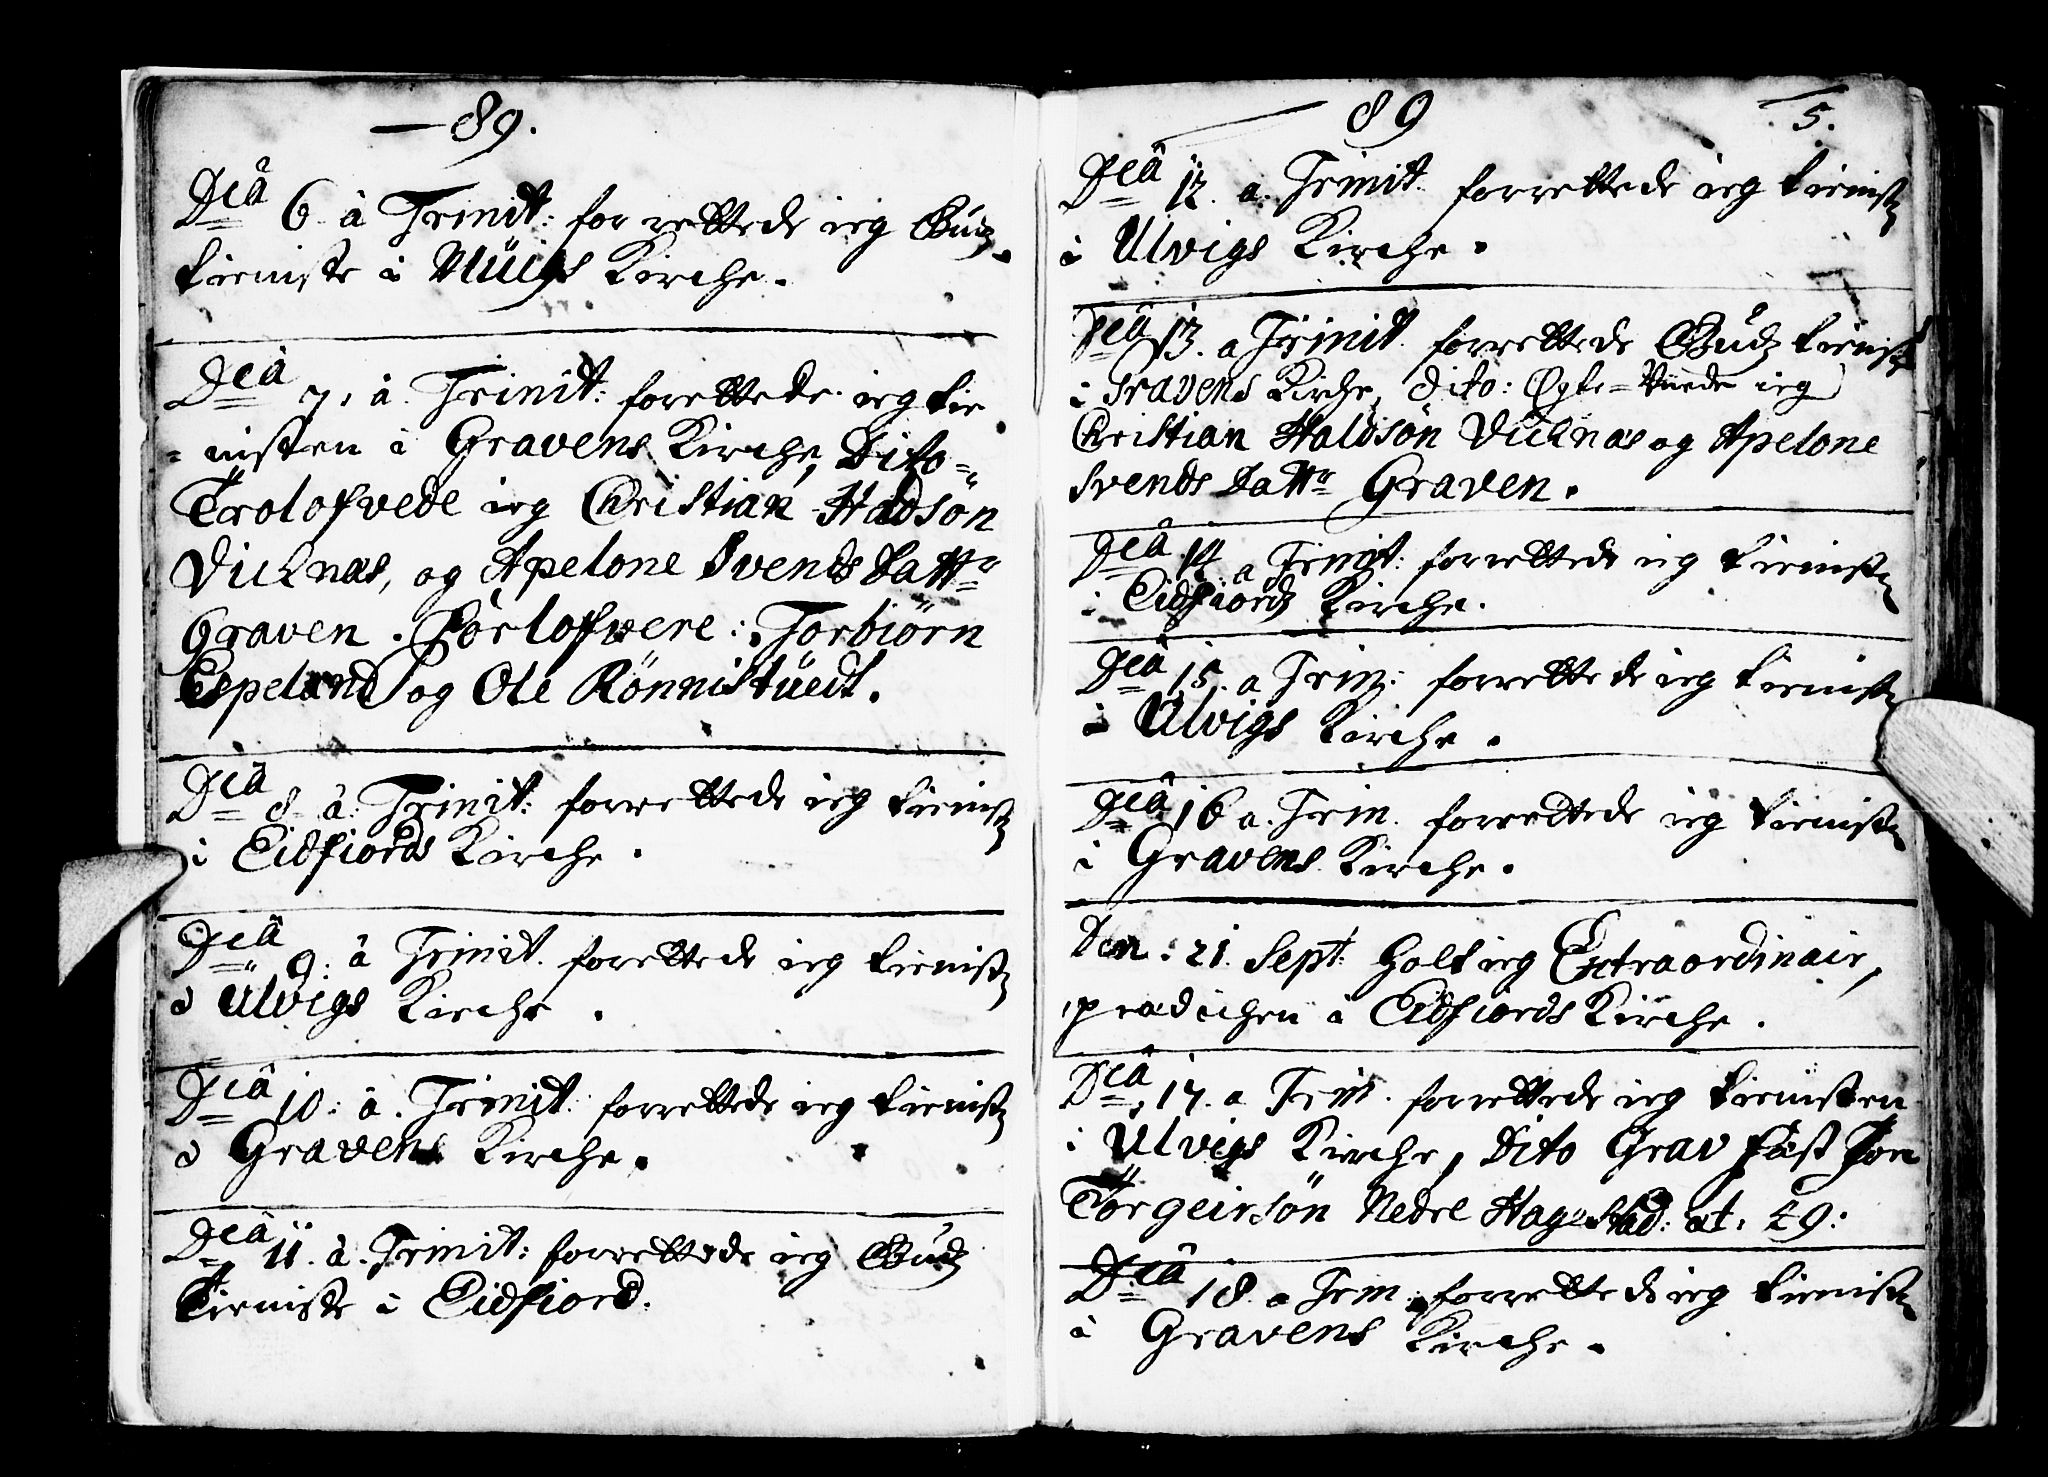 — 89.
Dcâ 6 â Trinit: forrettede ieg Gudz
tieniste i Ulvigs Kirche.
Dcâ 7. â. Trinit: forettede ieg tie
= nisten i Gravens Kirche, Dito =
Trolofvede ieg Christian Haldsøn
Vichnæs, og Apelone Svends dattr
Graven. Forlofvere: Torbiørn
Espeland og Ole Rønnistüedt.
Dcâ 8. â. Trinit: forrettede ieg tienistn
i Eidfiords Kirche.
Dcâ 9: â Trinit. forettede ieg tienistn
i Ulvigs Kirche.
Dcâ 10: â. Trinit: forrettede ieg tienistn
i Gravens Kirche.
Dcâ 11. â. Trinit: forrettede ieg Gudz
Tieniste i Eidfiord.
— 89 5.
Dcâ 12. a. Trinit. forrettede ieg tienistn
i Ulvigs Kirche.
Dcâ 13. a Trinit. forrettede Gudz tienist
i Gravens Kirche, dito: Egte=Viede ieg
Christian Haldsøn Vichnæs og Apelone
Svends dattr Graven.
Dcâ 14 a Trinit: forrettede ieg tienistn
i Eidfiordz Kirche.
Dcâ 15. a Trin: forrettede ieg tienistn
i Ulvigs Kirche.
Dcâ 16 a. Trin. forredtede ieg tienistn
i Gravens Kirche.
Den: 21. Sept: holt ieg Extraordinair,
prædichen i Eidfiords Kirche.
Dcâ 17. a Trin. forrettede ieg tienisten
i Ulvigs Kirche, Dito Grav fæst for
Torgeirsøn Nedre Hagestad: æt. 49:
Dcâ 18. a Trin: forrettede ieg tienistn
i Gravens Kirche.